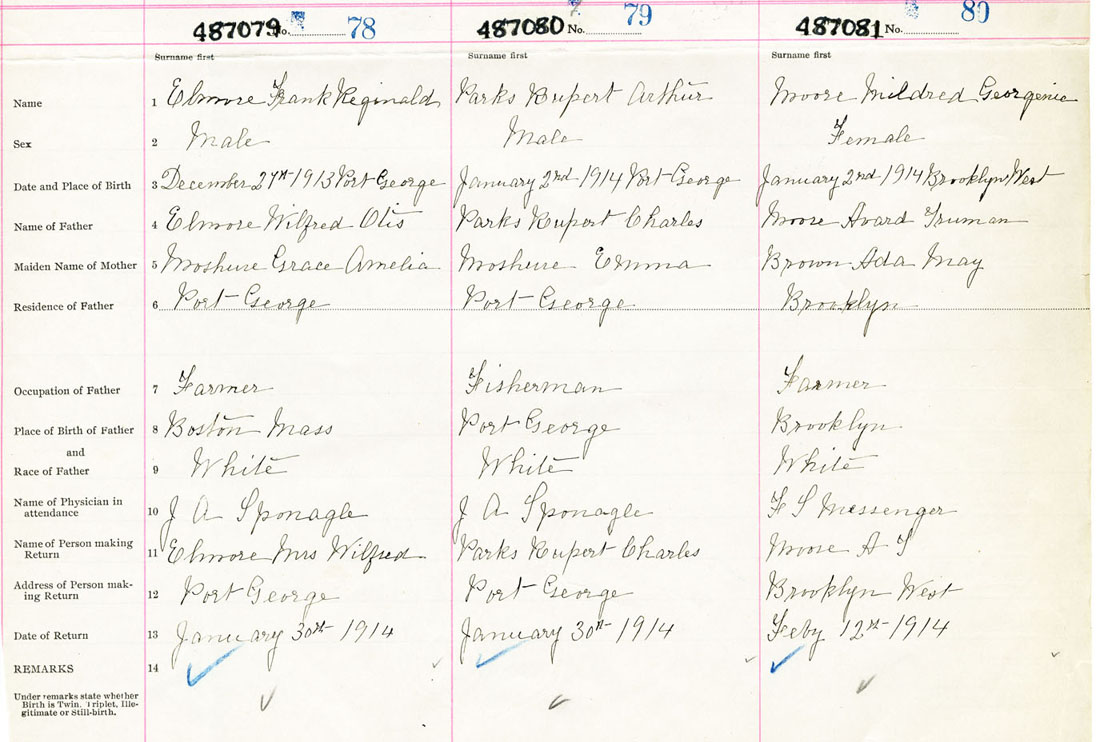 487079 No. 78 487080 No. 79 487081 No. 80
Surname first Surname first Surname first
Name 1 Elmore Frank Reginald Parks Rupert Arthur Moore Mildred Georgenie
Sex 2 Male Male Female
Date and Place of Birth 3 December 27th 1913 Port George January 2nd 1914 Port George January 2nd 1914 Brooklyn West
Name of Father 4 Elmore Wilfred Otis Parks Rupert Charles Moore Avard Truman
Maiden Name of Mother 5 Grace Amelia Emma Brown Ada May
Residence of Father 6 Port George Port George Brooklyn
Occupation of Father 7 Farmer Fisherman Farmer
Place of Birth of Father 8 Boston Mass Port George Brooklyn
and
Race of Father 9 White White White
Name of Physician in
attendance 10 J A Sponagle J A Sponagle F S Messenger
Name of Person making
Return 11 Elmore Mrs Wilfred Parks Rupert Charles Moore A T
Address of Person mak-
ing Return 12 Port George Port George Brooklyn West
Date of Return 13 January 30th 1914 January 30th 1914 Feby 12th 1914
REMARKS 14
Under remarks state whether
Birth is Twin, Triplet, Ille-
gitimate or Still-birth.